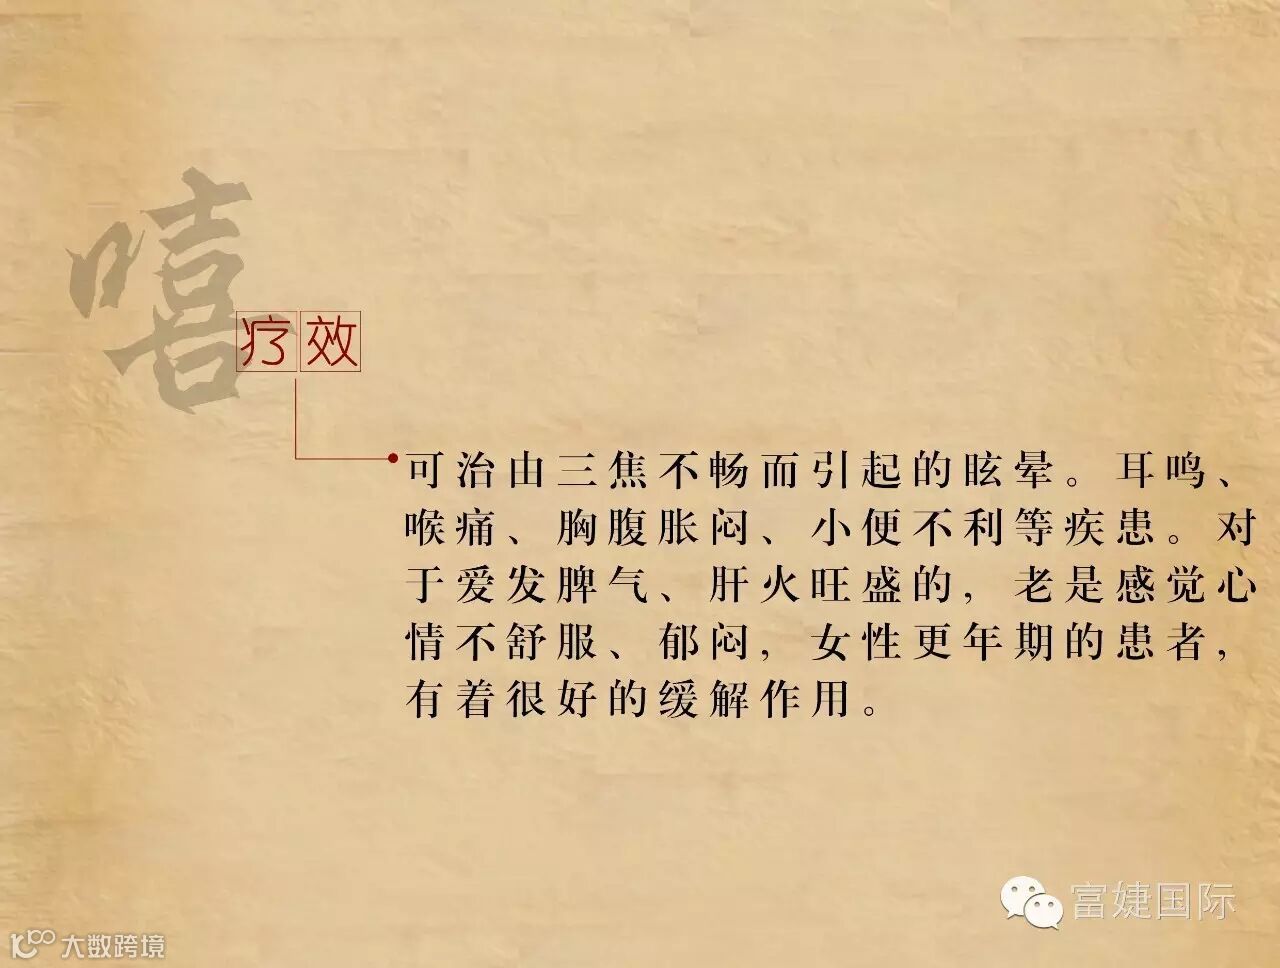 嘻
疗效
可治由三焦不畅而引起的眩晕。耳鸣、
喉痛、胸腹胀闷、小便不利等疾患。对
于爱发脾气、肝火旺盛的，老是感觉心
情不舒服、郁闷，女性更年期的患者，
有着很好的缓解作用。
富婕国际
大数跨境